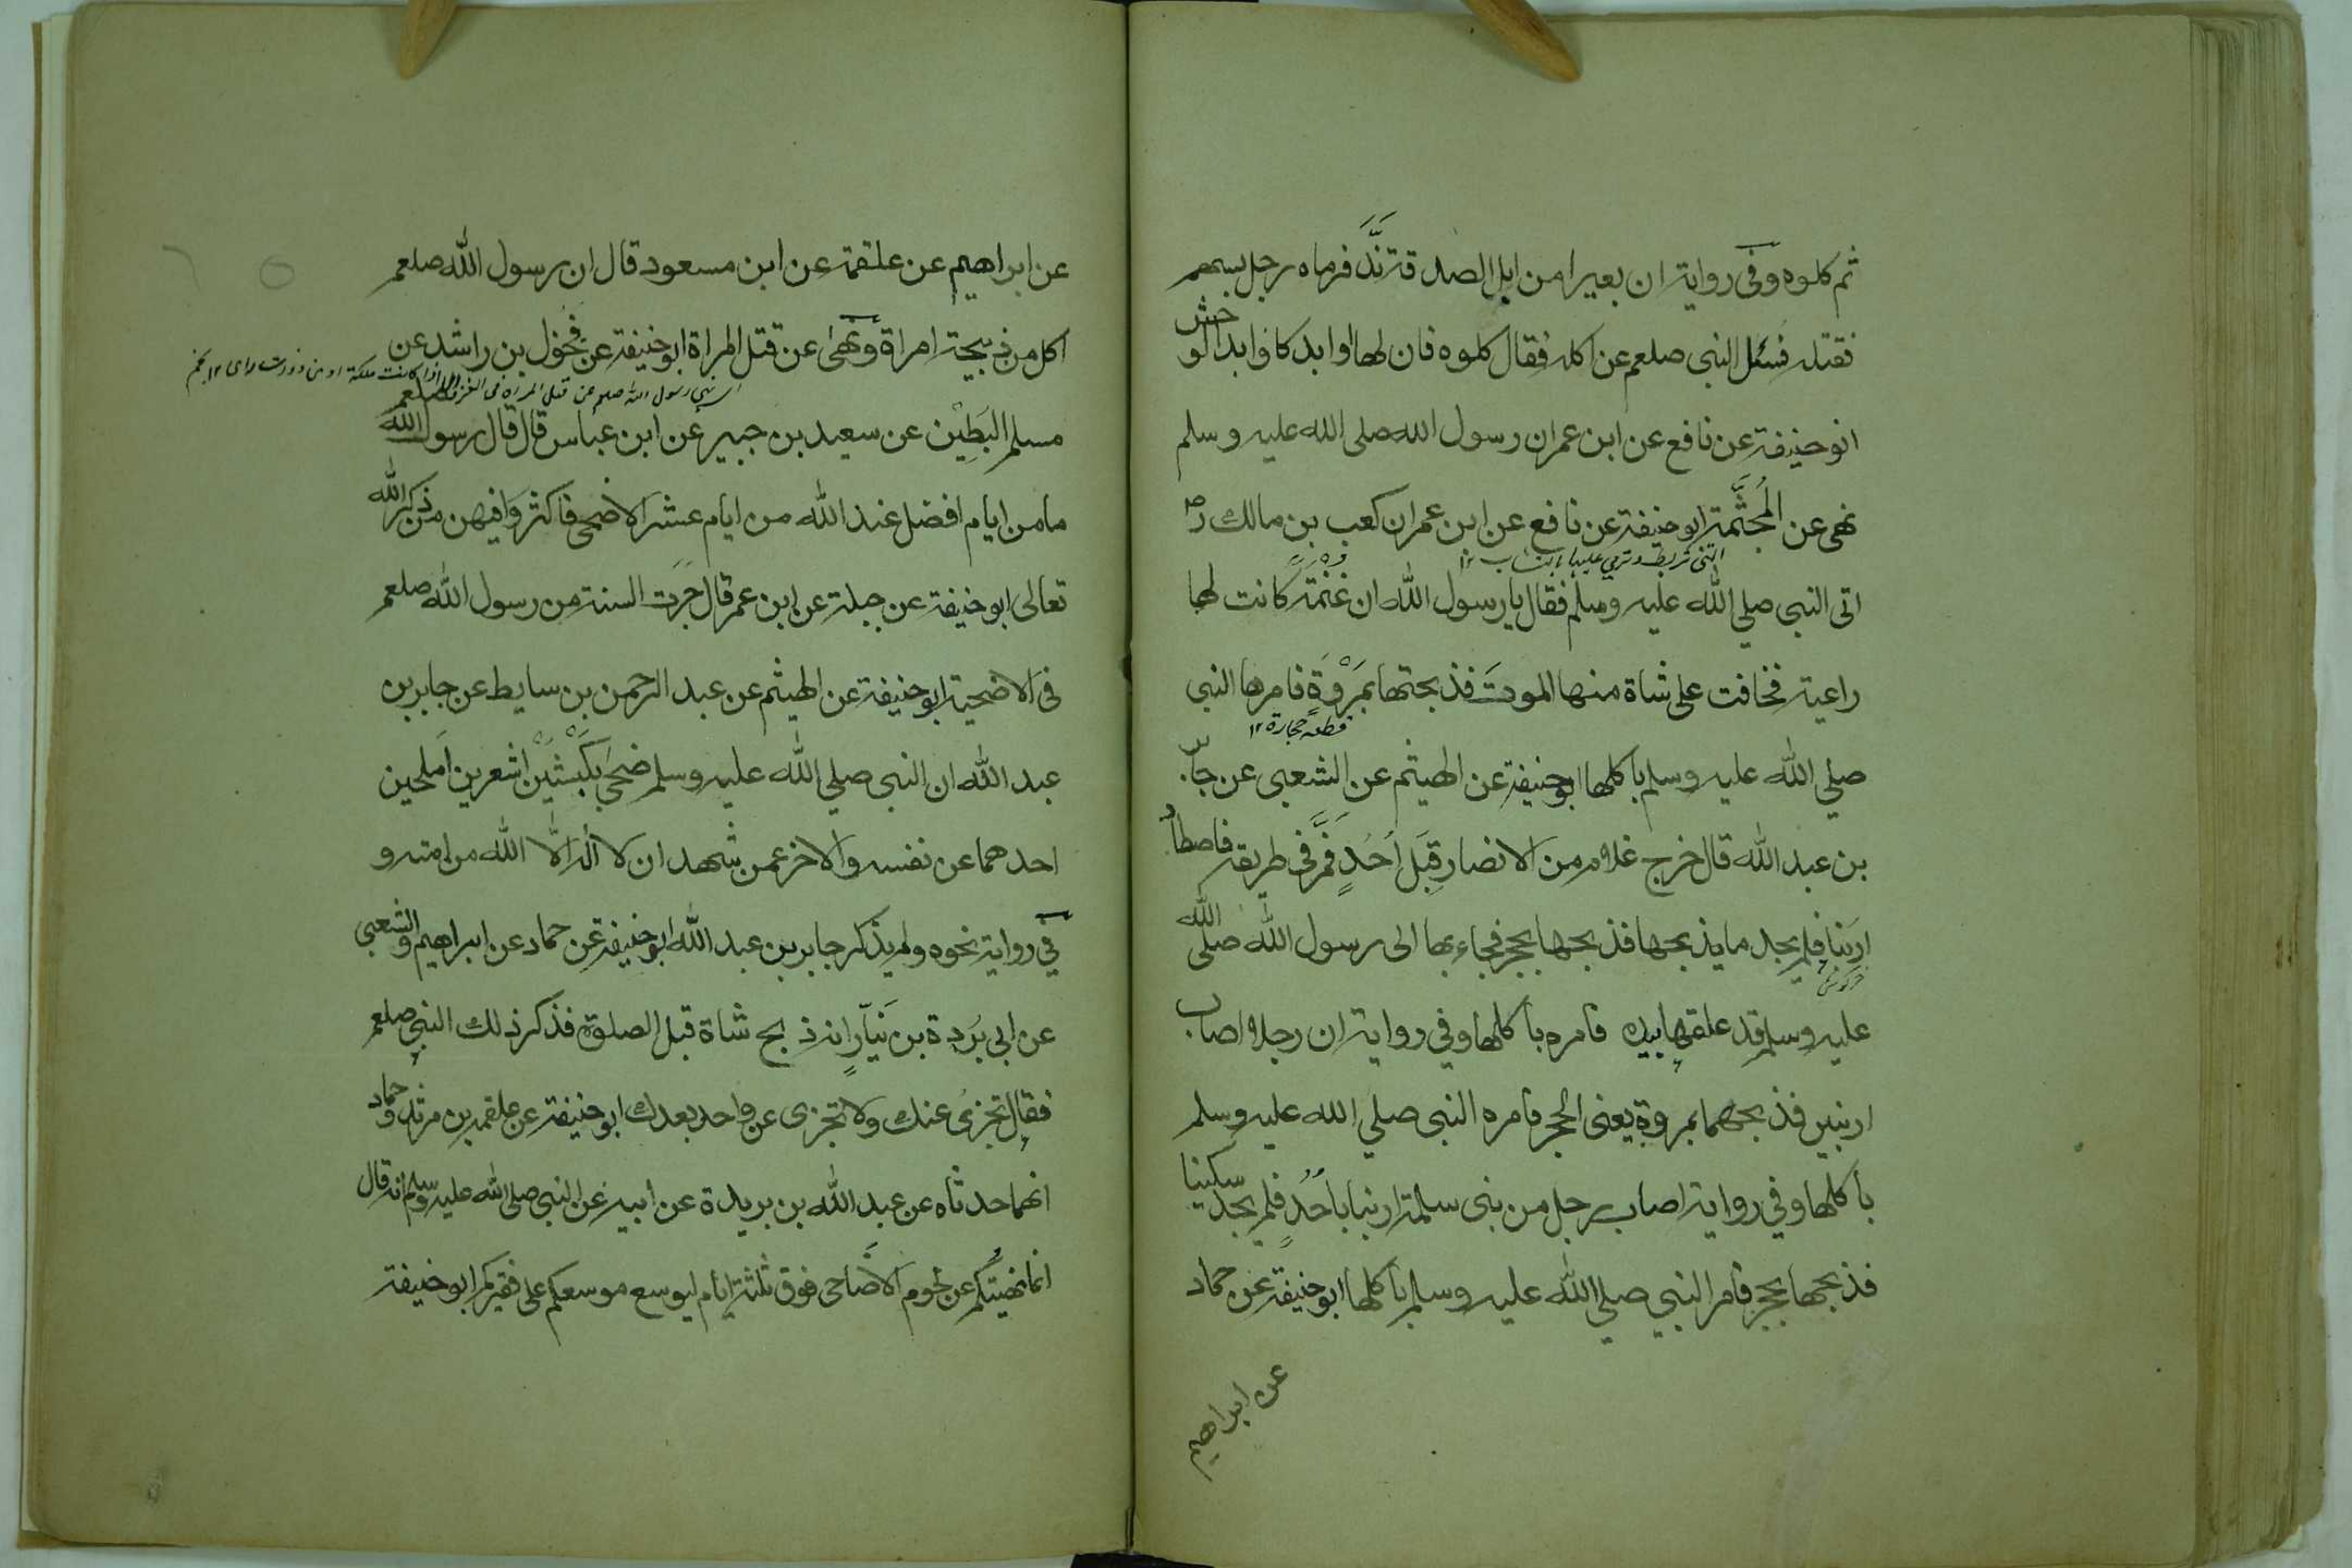 ثم كلوه وفى رواية ان بعيرا من ابل الصدقة نَدَّ فرماه رجل بسهم
فقتله فسئل النبى صلعم عن اكله فقال كلوه فان لها اوابد كاوابد الوحش
ابو حنيفة عن نافع عن ابن عمر ان رسول الله صلى الله عليه وسلم
نهى عن المُجَثَّمة ابو حنيفة عن نافع عن ابن عمر ان كعب بن مالك رض
التى تربط وترمي عليها بالنشاب ١٢
اتى النبى صلي الله عليه وسلم فقال يا رسول الله ان غنمة كانت لها
راعية فخافت على شاة منها الموت فذبحتها بمَرْوَةٍ فامرها النبى
قطعه حجارة ١٢
صلي الله عليه وسلم باكلها ابو حنيفة عن الهيثم عن الشعبى عن جابر
بن عبد الله قال خرج غلام من الانصار قِبَلَ اُحُدٍ فمَرَّ فى طريقه فاصطاد
ارنبا فلم يجد ما يذبحها فذبحها بحجر فجاء بها الى رسول الله صلى الله
خرگوش
عليه وسلم قد علقها بيده فامره باكلها وفي رواية ان رجلا اصاب
ارنبين فذبحهما بمروة يعنى الحجر فامره النبى صلي الله عليه وسلم
باكلها وفي رواية اصاب رجل من بنى سلمة ارنبا باُحُدٍ فلم يجد سكينا
فذبحها بحجر فامر النبي صلي الله عليه وسلم باكلها ابو حنيفة عن حماد
عن ابراهيم
عن ابراهيم عن علقمة عن ابن مسعود قال ان رسول الله صلعم
اكل من ذبيحة امراة ونهى عن قتل المراة ابو حنيفة عن مخول بن راشد عن
نهي رسول الله صلعم عن قتل المراة فى الغزو الا اذا كانت ملكة او
مسلم البَطِيْن عن سعيد بن جبير عن ابن عباس قال قال رسول الله صلعم
ما من ايام افضل عند الله من ايام عشر الاضحى فاكثروا فيهن من ذكر الله
تعالى ابو حنيفة عن جبلة عن ابن عمر قال جَرَت السنة من رسول الله صلعم
فى الاضحية ابو حنيفة عن الهيثم عن عبد الرحمن بن سايط عن جابر بن
عبد الله ان النبى صلي الله عليه وسلم ضحى بكَبْشَيْن اشعرين املحين
احدهما عن نفسه والاخر عمن شهد ان لا اله الّا الله من امته و
في رواية نحوه ولم يذكر جابر بن عبد الله ابو حنيفة عن حماد عن ابراهيم والشعبى
عن ابى بُردة بن نَيّارٍ انه ذبح شاة قبل الصلوة فذكر ذلك النبي صلعم
فقال تجزئ عنك ولا تجزى عن واحد بعدك ابو حنيفة عن علقمه بن مرثد وحماد
انهما حدثاه عن عبد الله بن بريدة عن ابيه عن النبى صلى الله عليه وسلم انه قال
انما نهيتكم عن لحوم الاضاحى فوق ثلثة ايام ليوسع موسعكم على فقيركم ابو حنيفة